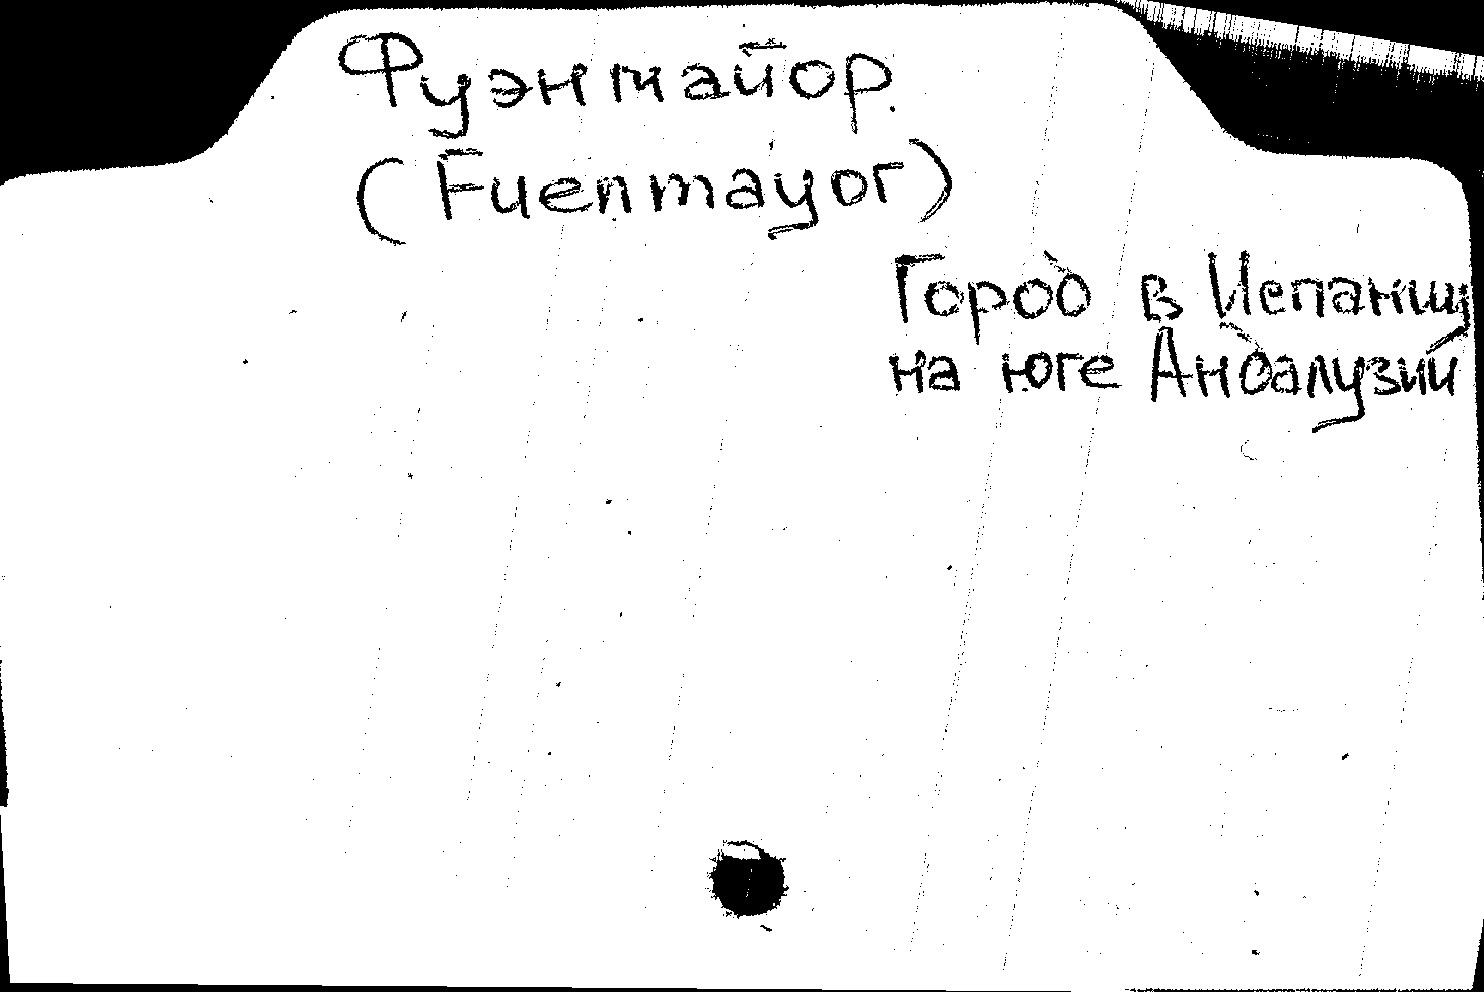 Фуэнмайор.
(Fuenmayor)
Город в Испании
на юге Андалузии